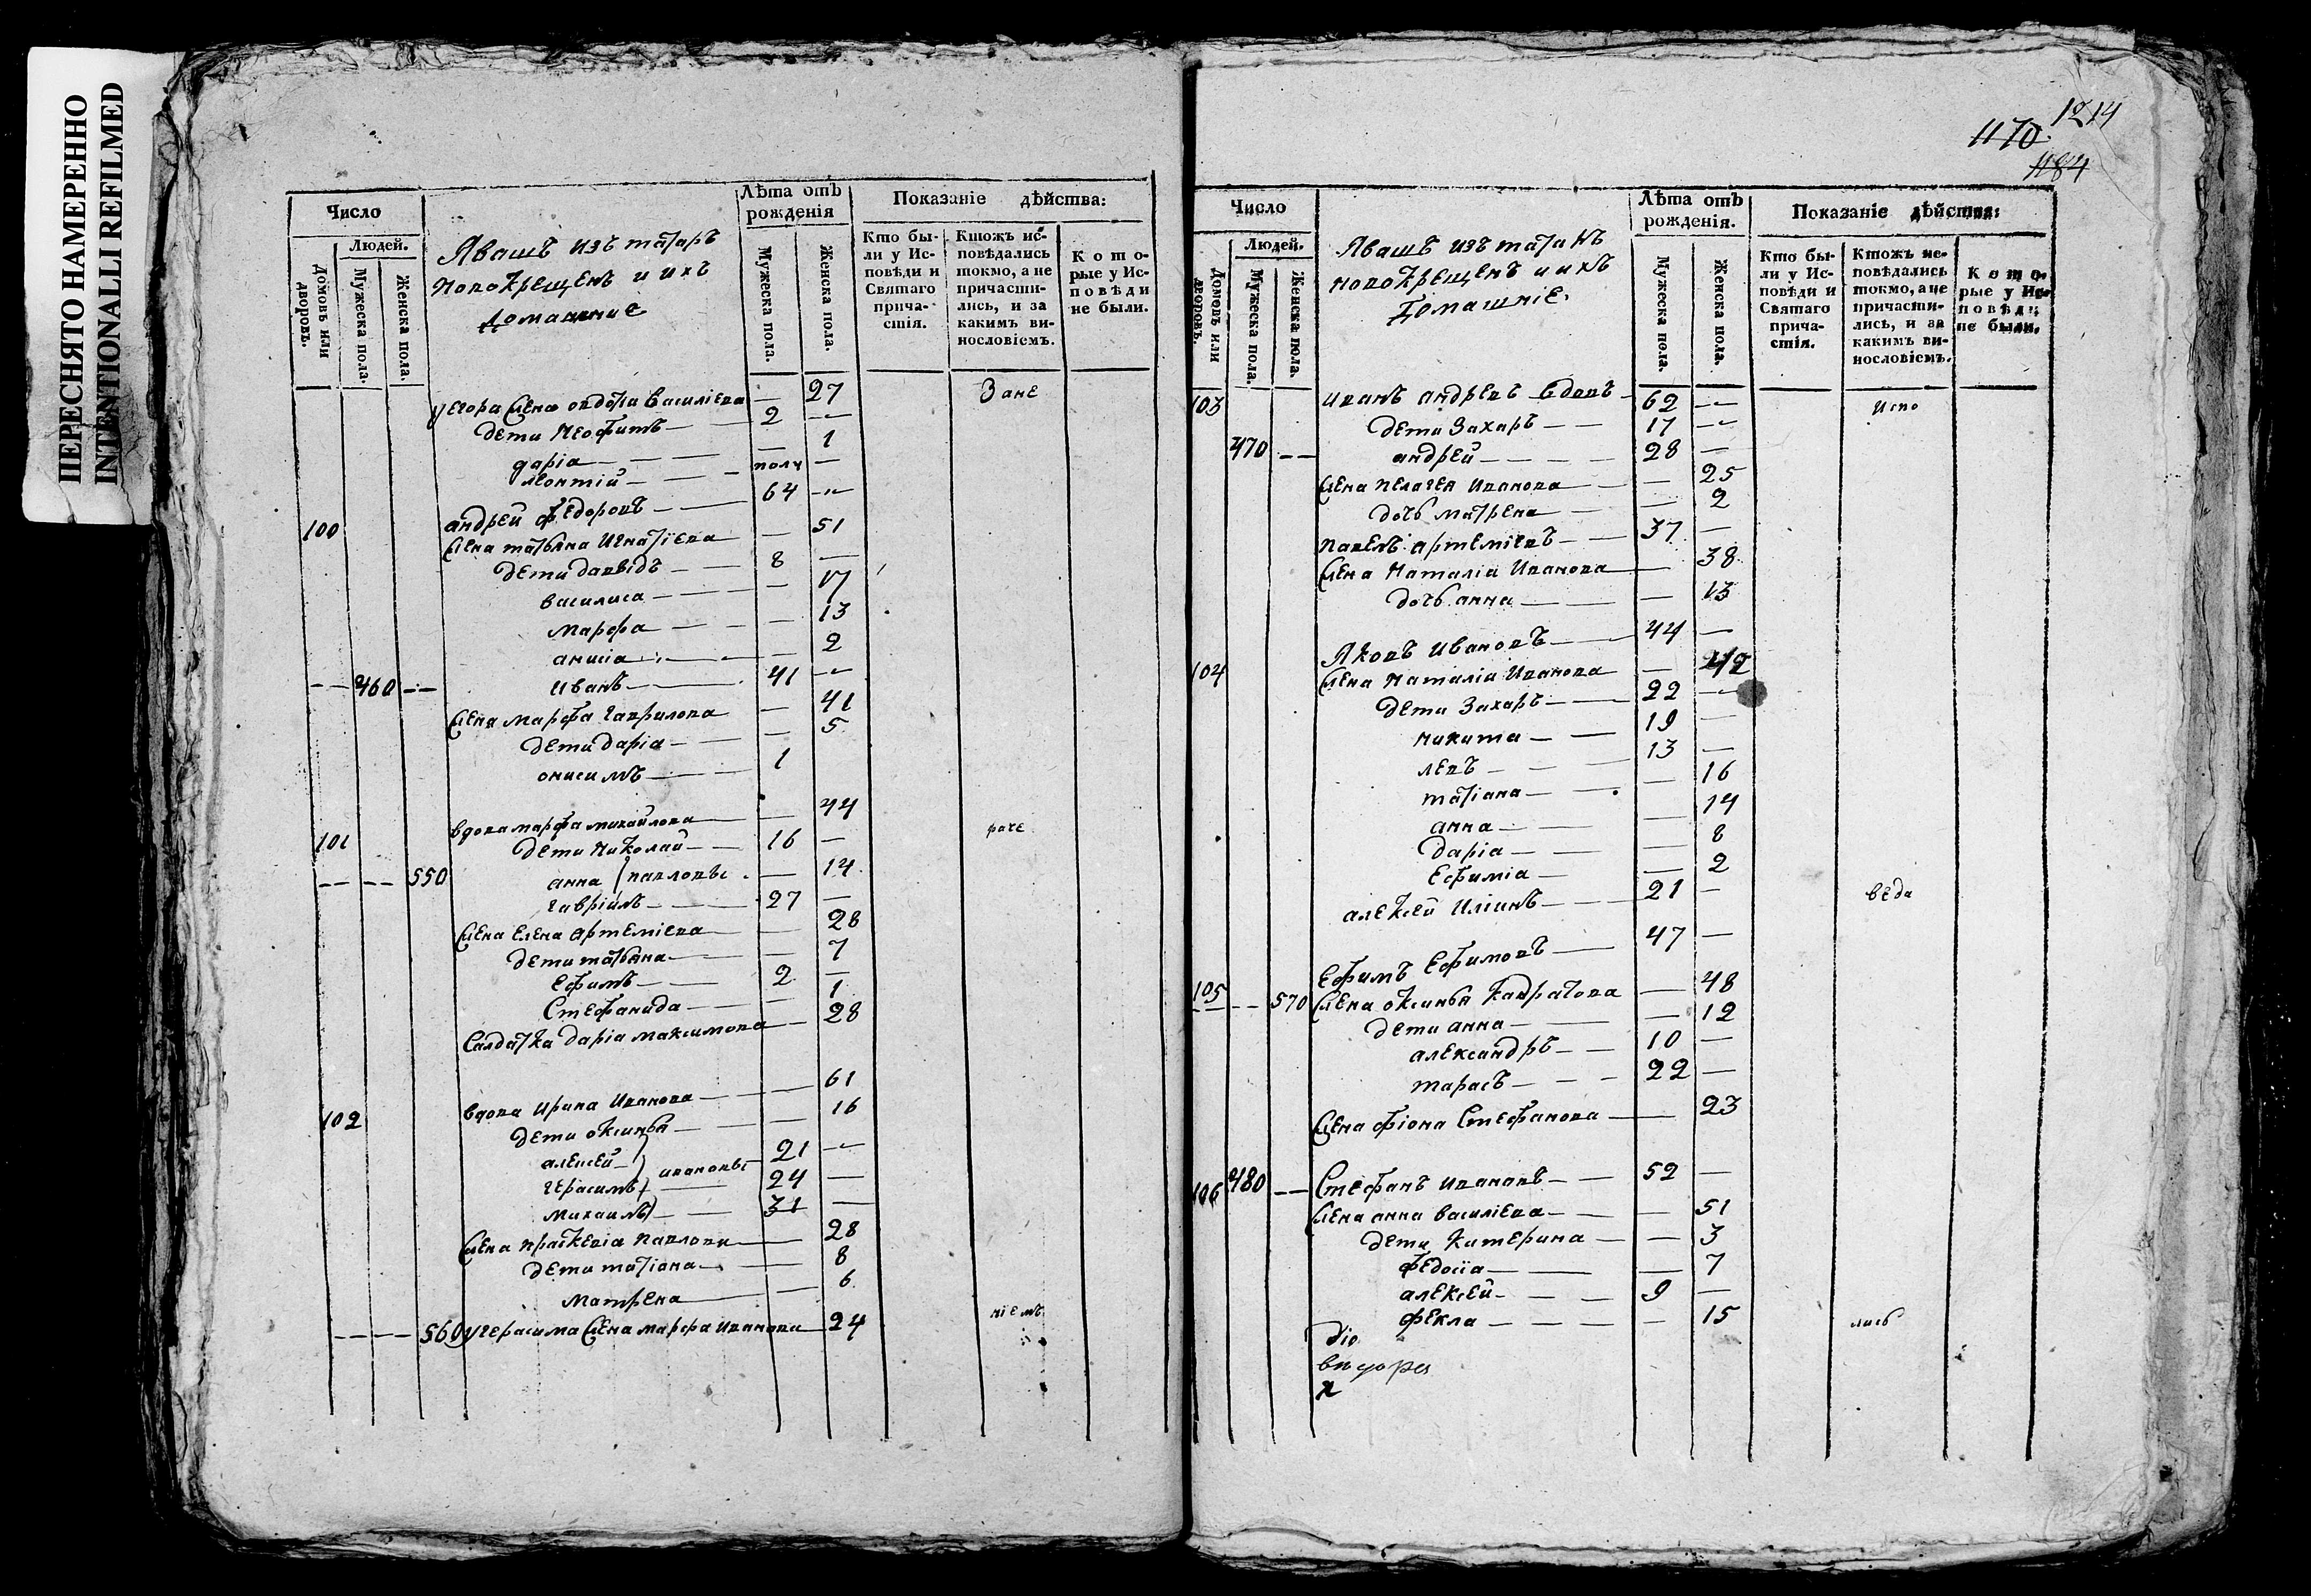 ПЕРЕСНЯТО НАМЕРЕННО
INTENTIONALLI REFILMED
Число
Людей.
Домовъ или дворовъ.
Мужеска пола.
Женска пола.
Явашъ изъ татаръ
новокрещенъ и ихъ
домашние
Лѣта отъ рожденія
Мужеска пола.
Женска пола.
Показаніе дѣйства:
Кто бы-
ли у Ис-
повѣди и
Святаго
прича-
стія.
Ктожъ ис-
повѣдались
токмо, а не
причасти-
лись, и за
какимъ ви-
нословіемъ.
Кото-
рые у Ис-
повѣди
не были.
у егора жена овдотія василиева — 27 Зане
дети Неофитъ — 2 —
дарія — — 1
леонтій — полу —
100 андрей федоровъ — 64 —
жена татьяна игнатіева — 51
дети давыдъ — 8 —
василиса — — 17
марфа — — 13
анисіа — — 2
460 иванъ — 41 —
жена марфа гаврилова — 41
дети дарія — — 5
онисимъ — 1
101 вдова марфа михайлова — 44 раче
дети николай — 16 —
550 анна павловы — 14
гавріилъ — 27 —
жена елена артеміева — 28
дети татьяна — — 7
ефимъ — 2 —
Стефанида — — 1
Салдатка дарія максимова — 28
102 вдова ирина иванова — 61
дети оксинья — — 16
алексей — ивановы 21 —
герасимъ — 24 —
михаилъ — 31 —
жена праскевіа павлова — 28
дети татіана — — 8
матрена — — 6
560 у герасима жена марфа иванова — 24 ніемъ
1170 1214
1184
Число
Людей.
Домовъ или дворовъ.
Мужеска пола.
Женска пола.
Явашъ изъ татаръ
новокрещенъ и ихъ
домашніе.
Лѣта отъ рожденія.
Мужеска пола.
Женска пола.
Показаніе дѣйства:
Кто бы-
ли у Ис-
повѣди и
Святаго
прича-
стія.
Ктожъ ис-
повѣдались
токмо, а не
причасти-
лись, и за
какимъ ви-
нословіемъ.
Кото-
рые у Ис-
повѣди
не были.
103 иванъ андреевъ вдовъ — 62 — испо
дети захаръ — 17 —
470 андрей — 28 —
жена пелагея иванова — 25
дочь матрена — 2
павелъ артеміевъ — 37 —
жена Наталіа иванова — 38
дочь анна — 13
104 Яковъ ивановъ — 44 —
жена Наталіа иванова — 42
дети захаръ — 22 —
никита — 19 —
левъ — 13 —
татіана — 16
анна — 14
дарія — 8
ефиміа — 2
алексей иліинъ — 21 — веда
105 ефимъ ефимовъ — 47 —
570 жена оксинья кандратова — 48
дети анна — 12
александръ — 10 —
тарасъ — 22 —
жена фіона Стефанова — 23
106 480 Стефанъ ивановъ — 52 —
жена анна василіева — 51
дети катерина — 3
федосіа — 7
алексей — 9 —
фекла — 15 лись